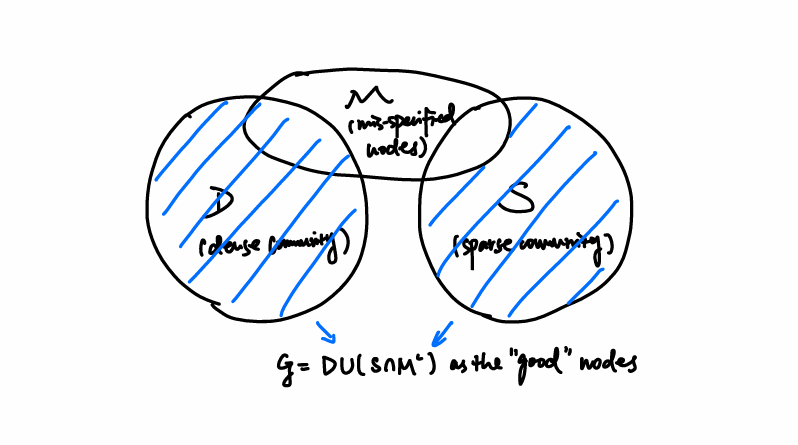 M
(mis-specified
nodes)
D
(dense community)
S
(sparse community)
G = D∪(S∩Mᶜ) as the "good" nodes